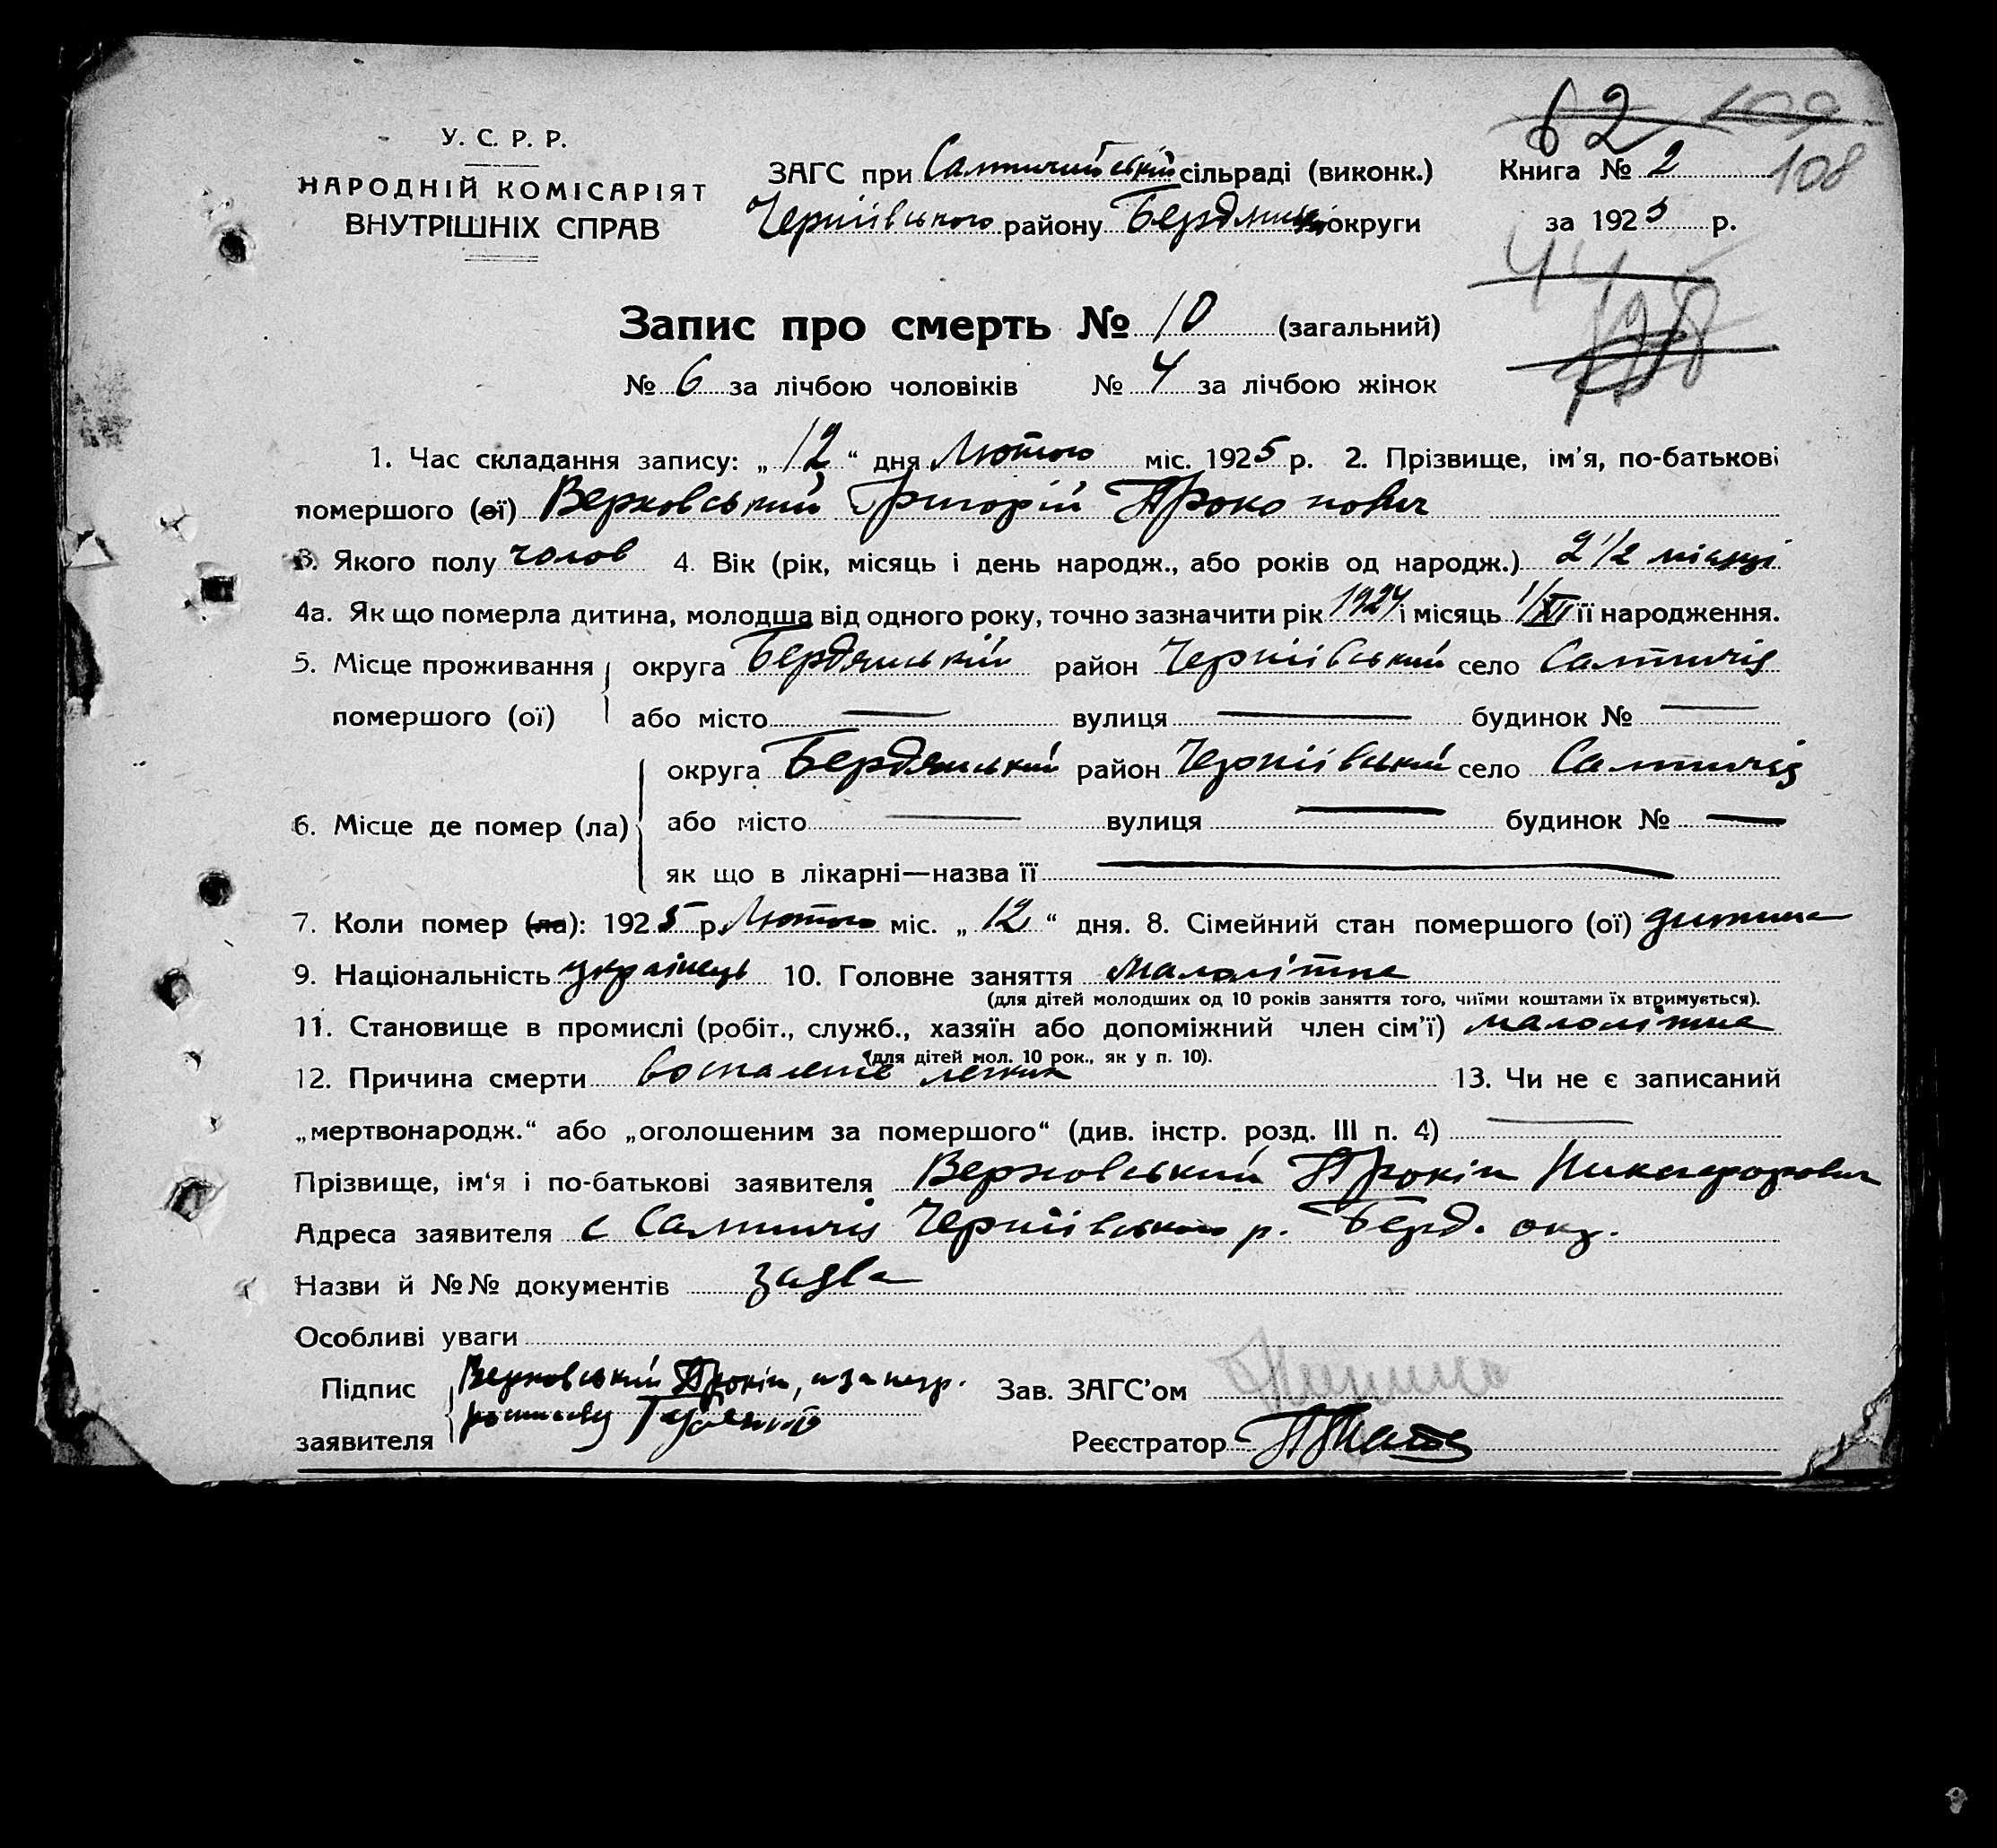 62 109
У. С. Р. Р.
НАРОДНІЙ КОМІСАРІЯТ
ВНУТРІШНІХ СПРАВ
ЗАГС при Салтичийській сільраді (виконк.)
Чернiiвського району Бердянської округи
Книга № 2 108
за 1925 р.
44
Запис про смерть № 10 (загальний)
№ 6 за лічбою чоловіків № 4 за лічбою жінок
1. Час складання запису: „12“ дня Лютого міс. 1925 р. 2. Прізвище, ім’я, по-батькові
помершого (ої) Верховський Григорій Прокопович
3. Якого полу чолов 4. Вік (рік, місяць і день народж., або років од народж.) 2 1/2 місяці
4а. Як що померла дитина, молодша від одного року, точно зазначити рік 1924 і місяць 1/XII її народження.
5. Місце проживання округа Бердянський район Черніівський село Салтичія
помершого (ої) або місто — вулиця — будинок № —
округа Бердянський район Черніівський село Салтичія
6. Місце де помер (ла) або місто — вулиця — будинок № —
як що в лікарні—назва її —
7. Коли помер (ла): 1925 р. Лютого міс. „12“ дня. 8. Сімейний стан помершого (ої) дитина
9. Національність українець 10. Головне заняття малолітне
(для дітей молодших од 10 років заняття того, чиїми коштами їх втримується).
11. Становище в промислі (робіт., служб., хазяїн або допоміжний член сім’ї) малолітне
(для дітей мол. 10 рок., як у п. 10).
12. Причина смерти воспаление легких 13. Чи не є записаний
„мертвонародж.“ або „оголошеним за помершого“ (див. інстр. розд. III п. 4) —
Прізвище, ім‘я і по-батькові заявителя Верховський Прокіп Никифорович
Адреса заявителя с Салтичія Черніівського р. Берд. окр.
Назви й №№ документів заява
Особливі уваги
Підпис Верховський Прокіп, а за негр.
заявителя
Зав. ЗАГС’ом
Реєстратор